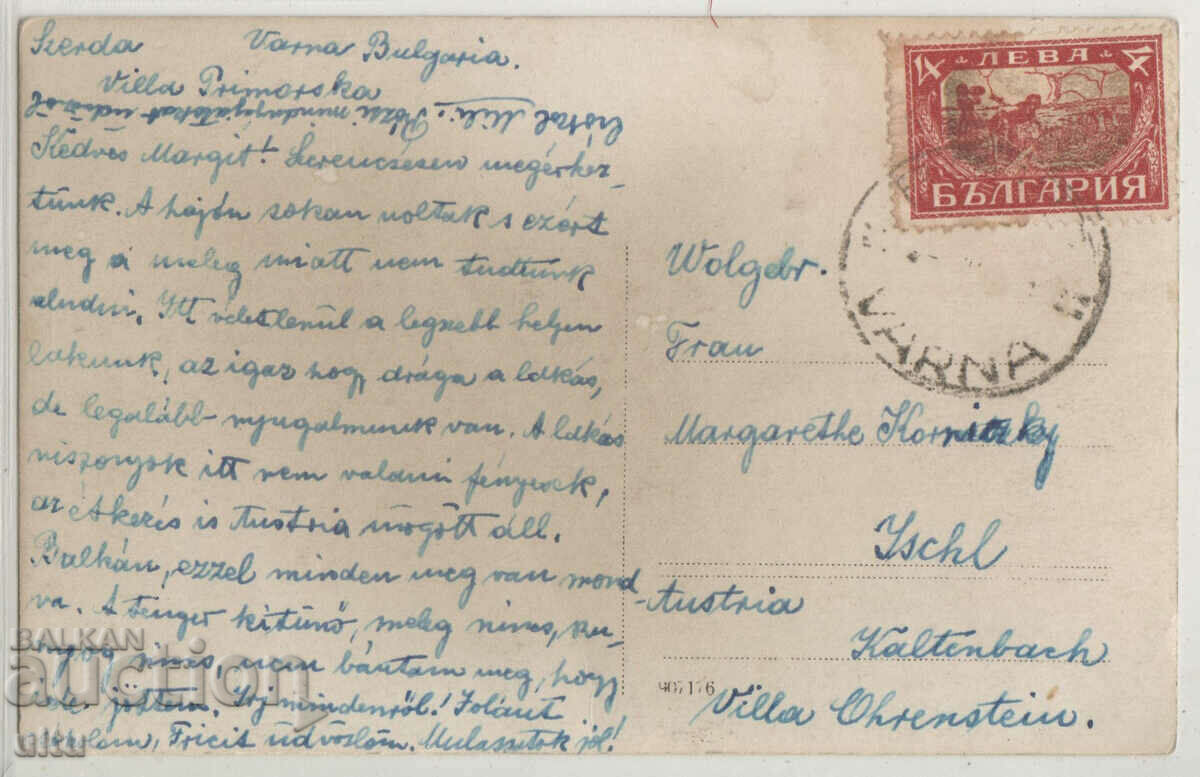 Szerda Varna Bulgaria.
Villa Primorska
Kedves Margit! Szerencsésen megérkez-
tünk. A hajón sokan voltak s ezért
meg a meleg miatt nem tudtunk
aludni. Itt véletlenül a legszebb helyen
lakunk, az igaz hogy drága a lakás,
de legalább nyugalmunk van. A lakás
viszonyok itt nem valami fényesek,
az étkezés is Austria mögött áll.
Balkán, ezzel minden meg van mond-
va. A tenger kitünő, meleg nincs, szu-
nyog nincs, nem bántam meg, hogy
jöttem. Irj mindenről! Jolánt
Fricit üdvözlöm. Mulassatok jól!
4 ЛЕВА 4
БЪЛГАРИЯ
VARNA
Wolgebr.
Frau
Margarethe Kornitzky
Ischl
Austria
Kaltenbach
Villa Ohrenstein.
907176
BALKAN
auction